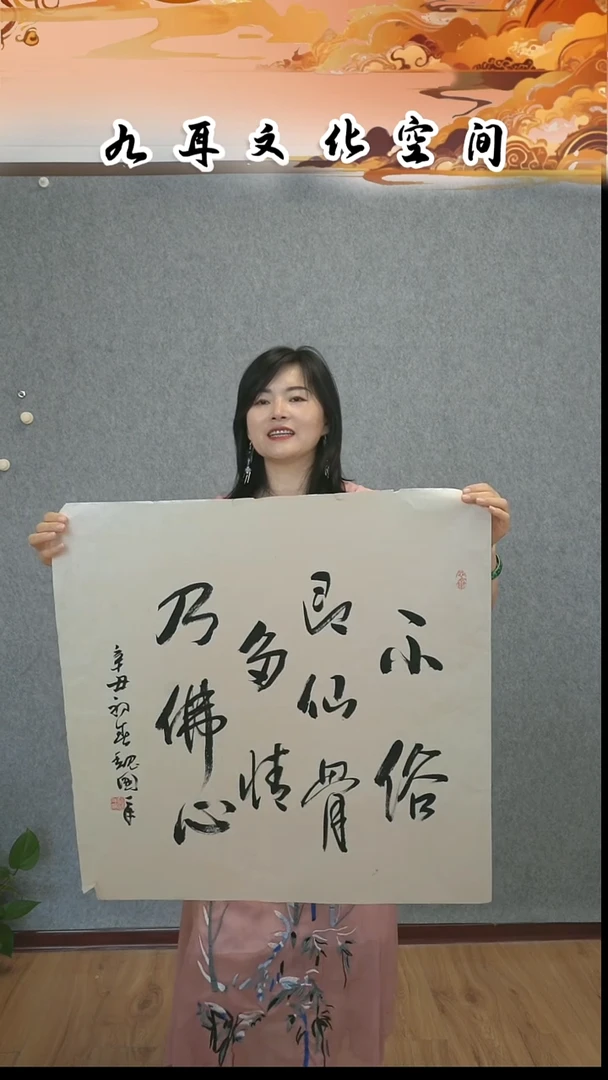 九耳文化空间
不俗
即仙骨
多情
乃佛心
辛丑初春魏国军